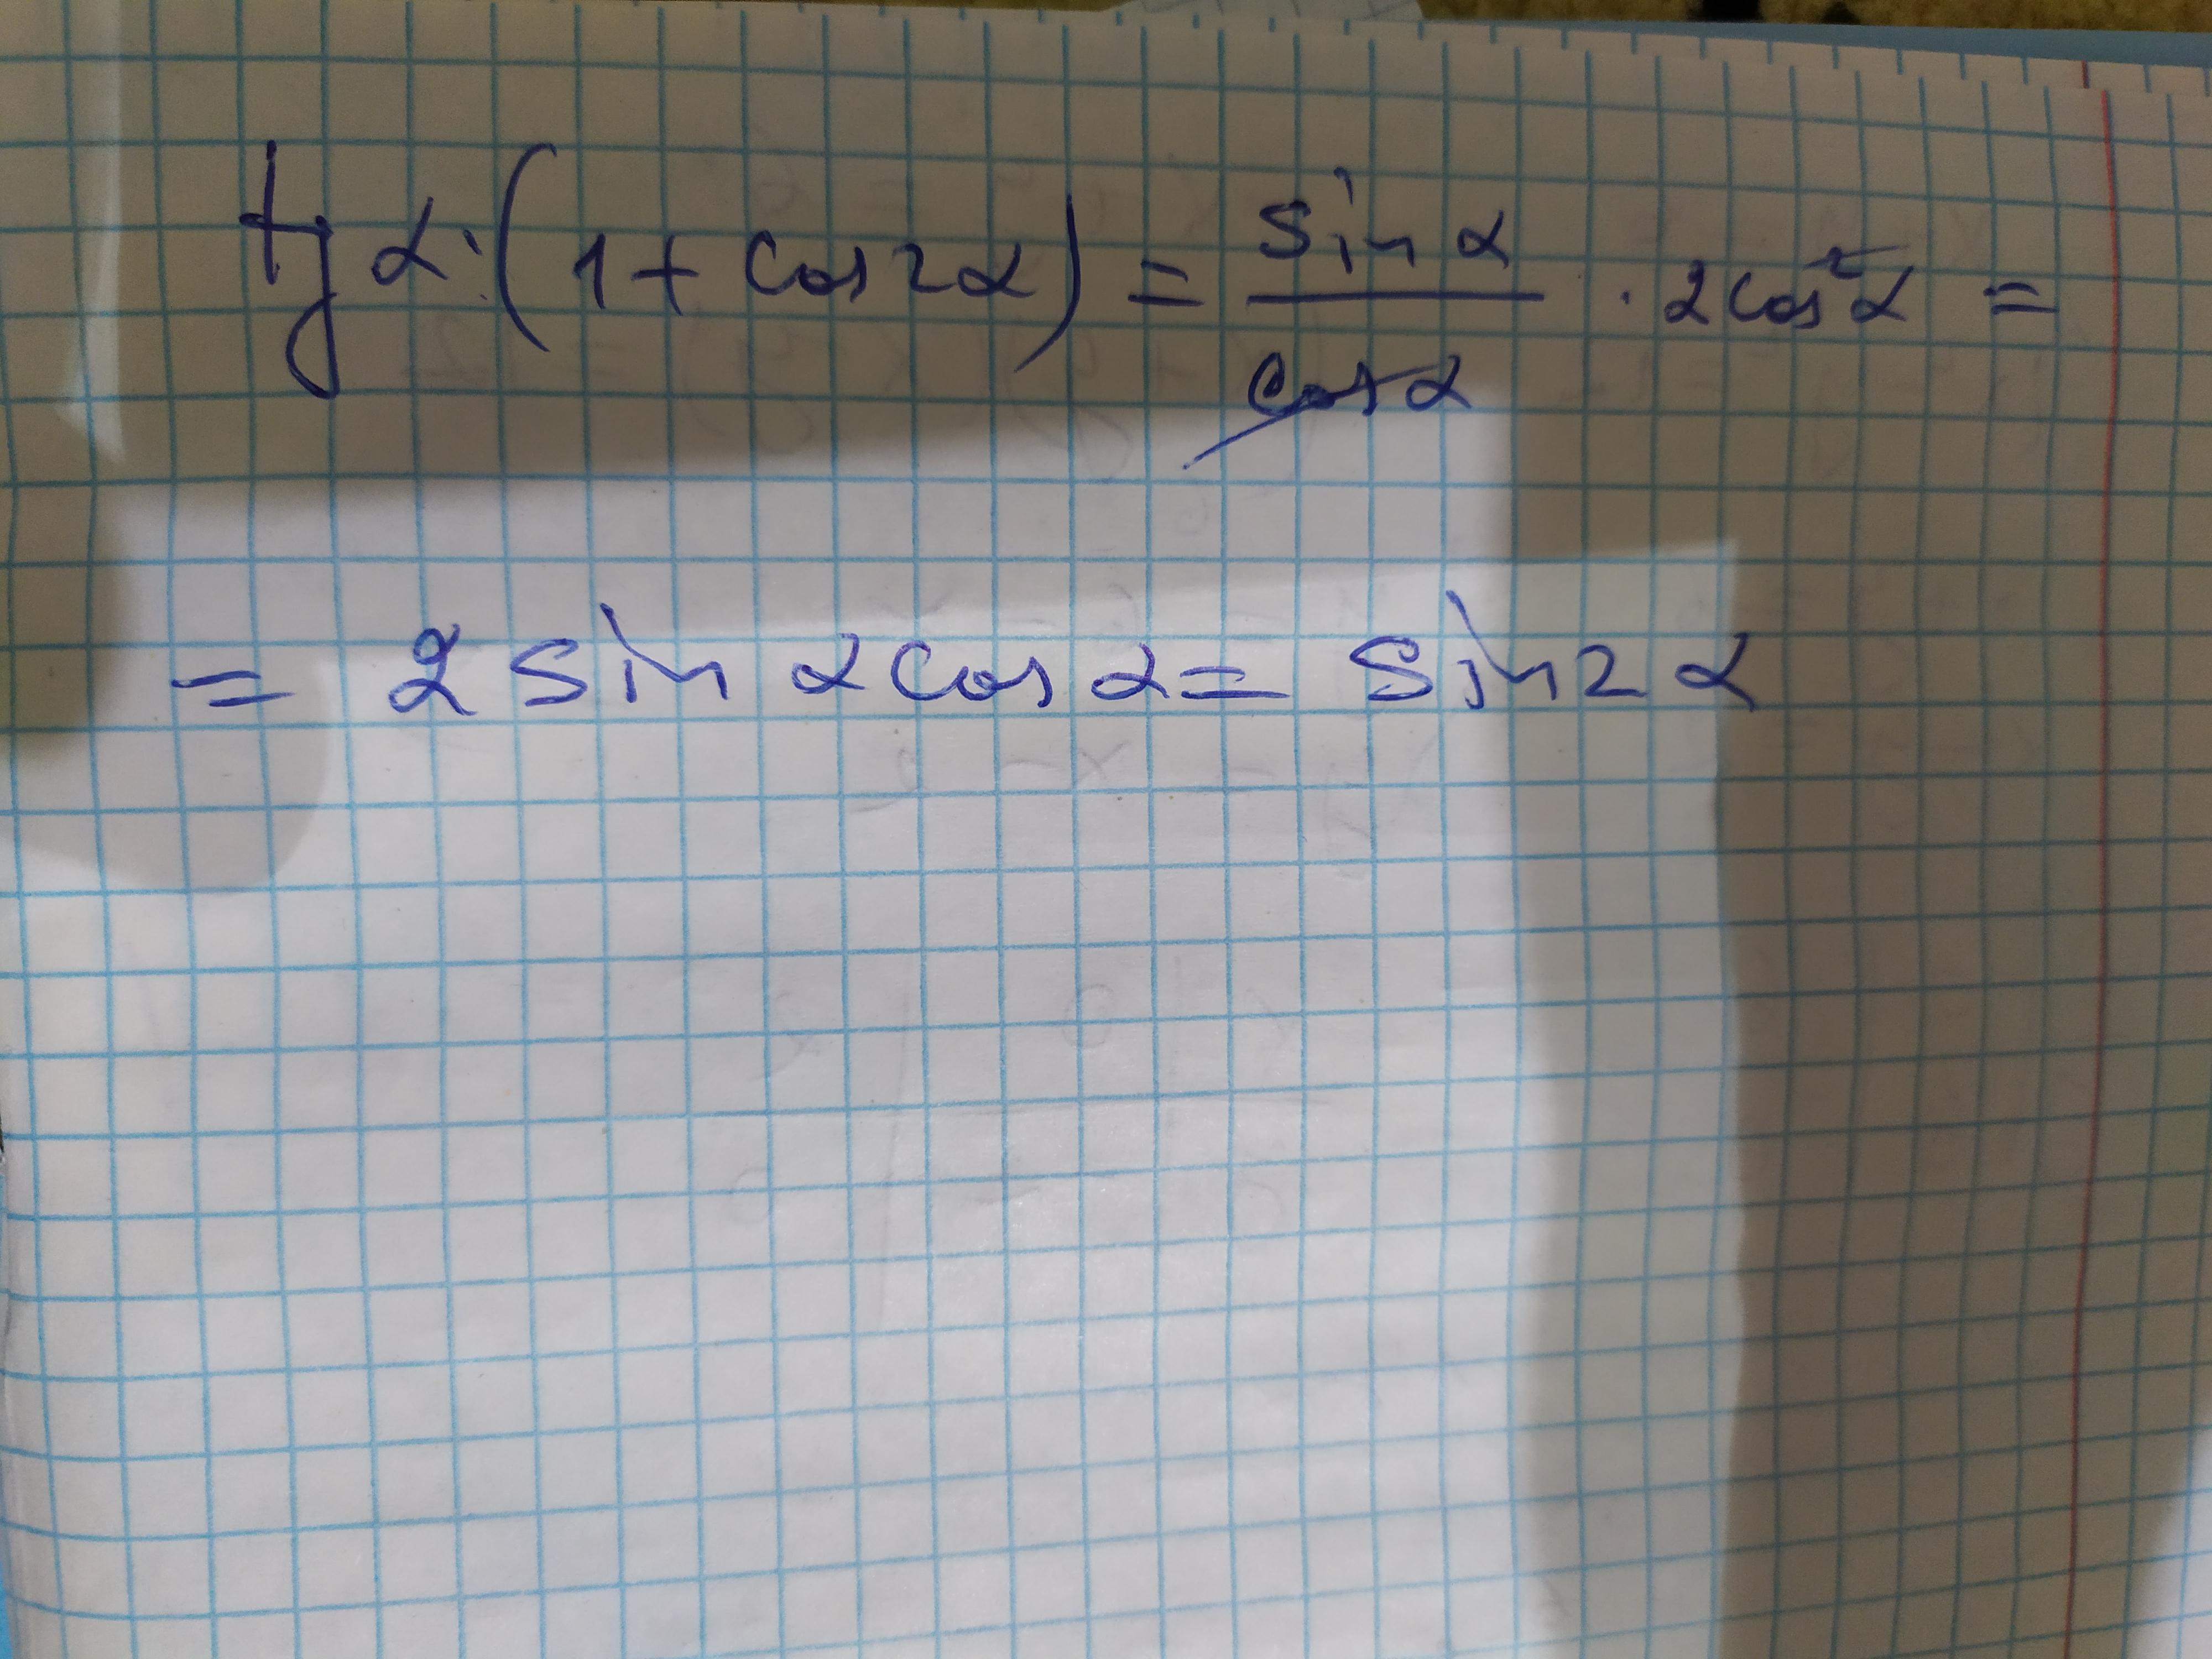 tg α·(1 + cos 2α) = sin α / cos α · 2cos²α =
= 2 sin α cos α = sin 2 α